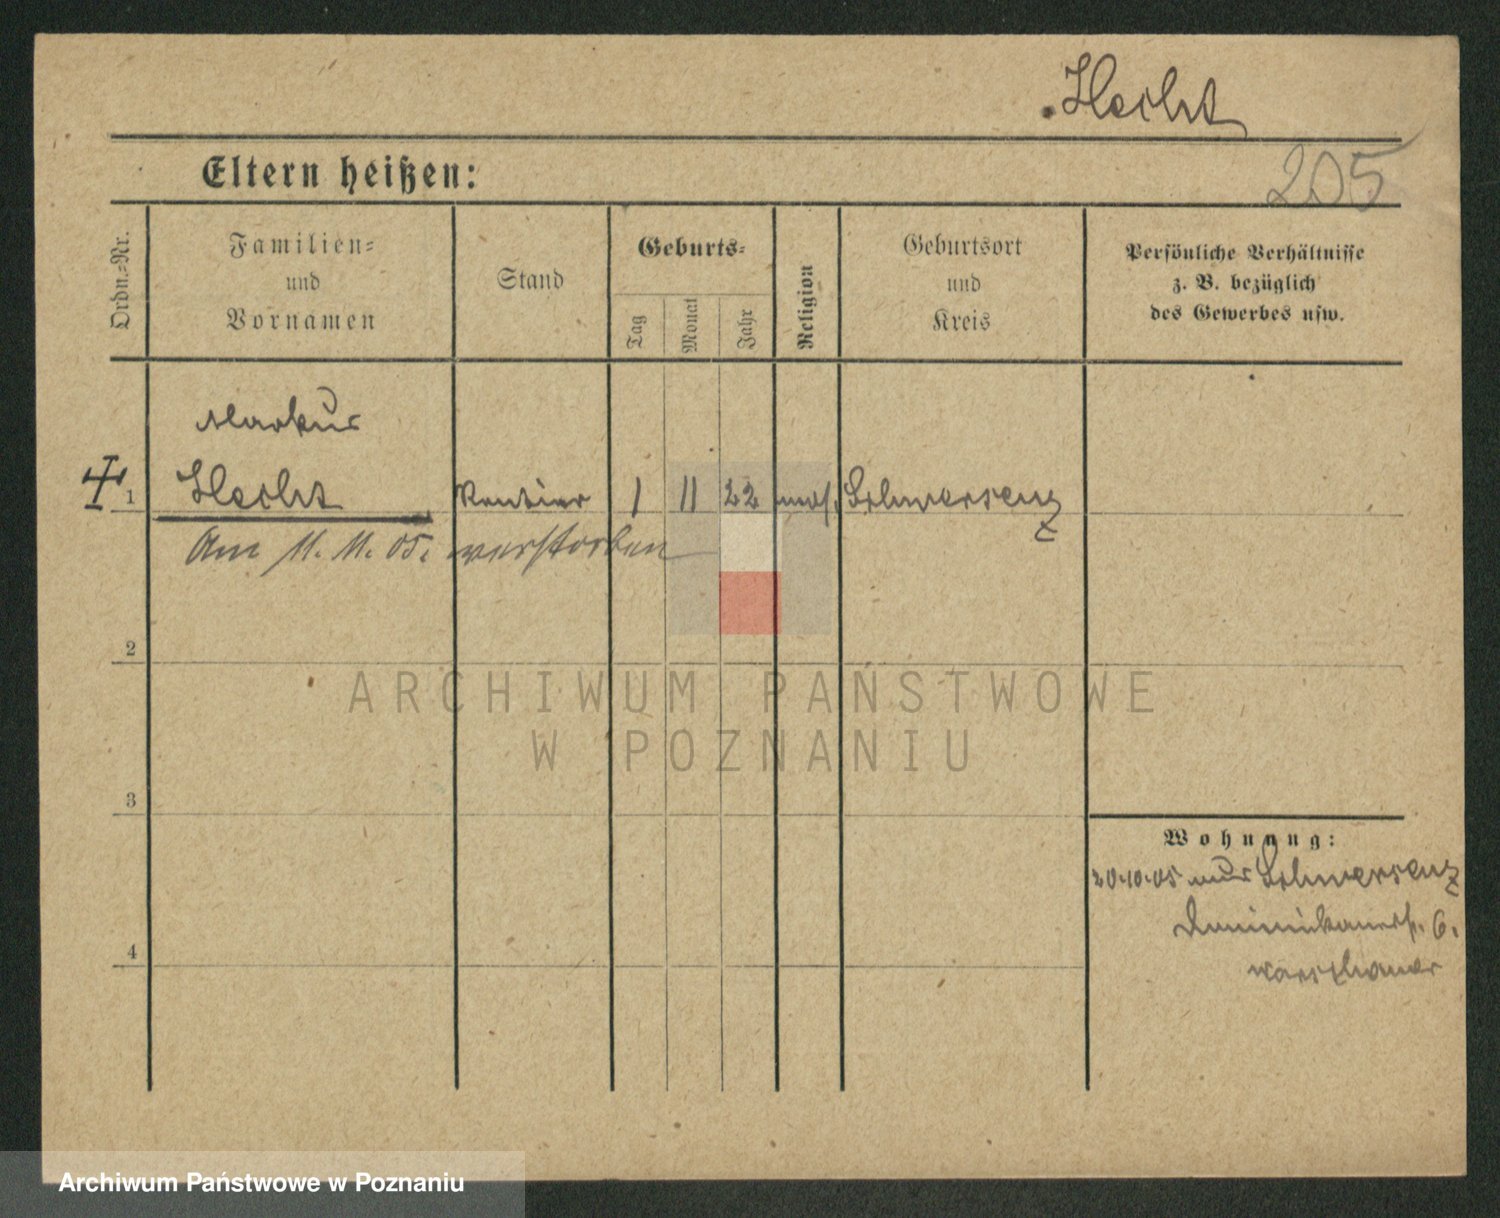 Hecht
205
Eltern heißen:
Ordn.-Nr.
Familien-
und
Vornamen
Stand
Geburts-
Tag
Monat
Jahr
Religion
Geburtsort
und
Kreis
Persönliche Verhältnisse
z. B. bezüglich
des Gewerbes usw.
Markus
1 Hecht Rentier 1 11 22 mos. Schwersenz
Am 11. 11. 05. verstorben
2
ARCHIWUM PAŃSTWOWE
W POZNANIU
3
Wohnung:
20.10.05 aus Schwersenz
Dominikanerstr. 6.
4
Archiwum Państwowe w Poznaniu